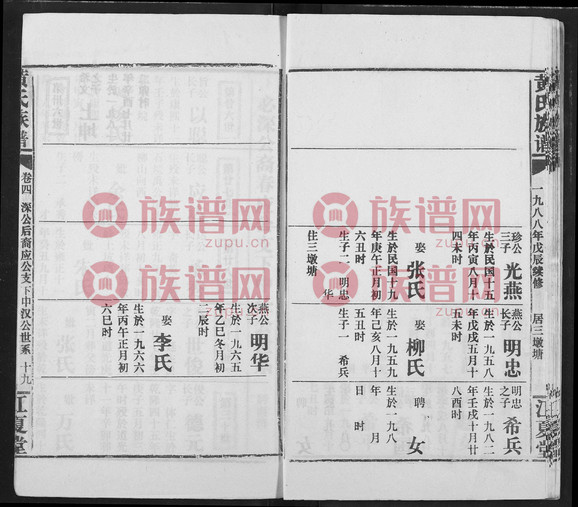 黄氏族谱
一九八八年戊辰续修 居三墩塘
江夏堂
珍公
三子
光燕
生於民国十五
年丙寅八月十
四未时
娶
张氏
生於民国十九
年庚午正月初
六丑时
生子二 明忠
华
住三墩塘
燕公
长子
明忠
生於一九五八
年戊戌五月十
五未时
娶
柳氏
生於一九五九
年己亥八月十
五丑时
生子一 希兵
明忠
之子
希兵
生於一九八二
年壬戌十月廿
八酉时
聘
女
生於一九八
年 月
日 时
燕公
次子
明华
生於一九六五
年乙巳冬月初
二辰时
娶
李氏
生於一九六六
年丙午正月初
六巳时
黄氏族谱
卷四 深公后裔应公支下中汉公世系 十九
江夏堂
族谱网
zupu.cn
族谱网
zupu.cn
族谱网
zupu.cn
族谱网
zupu.cn